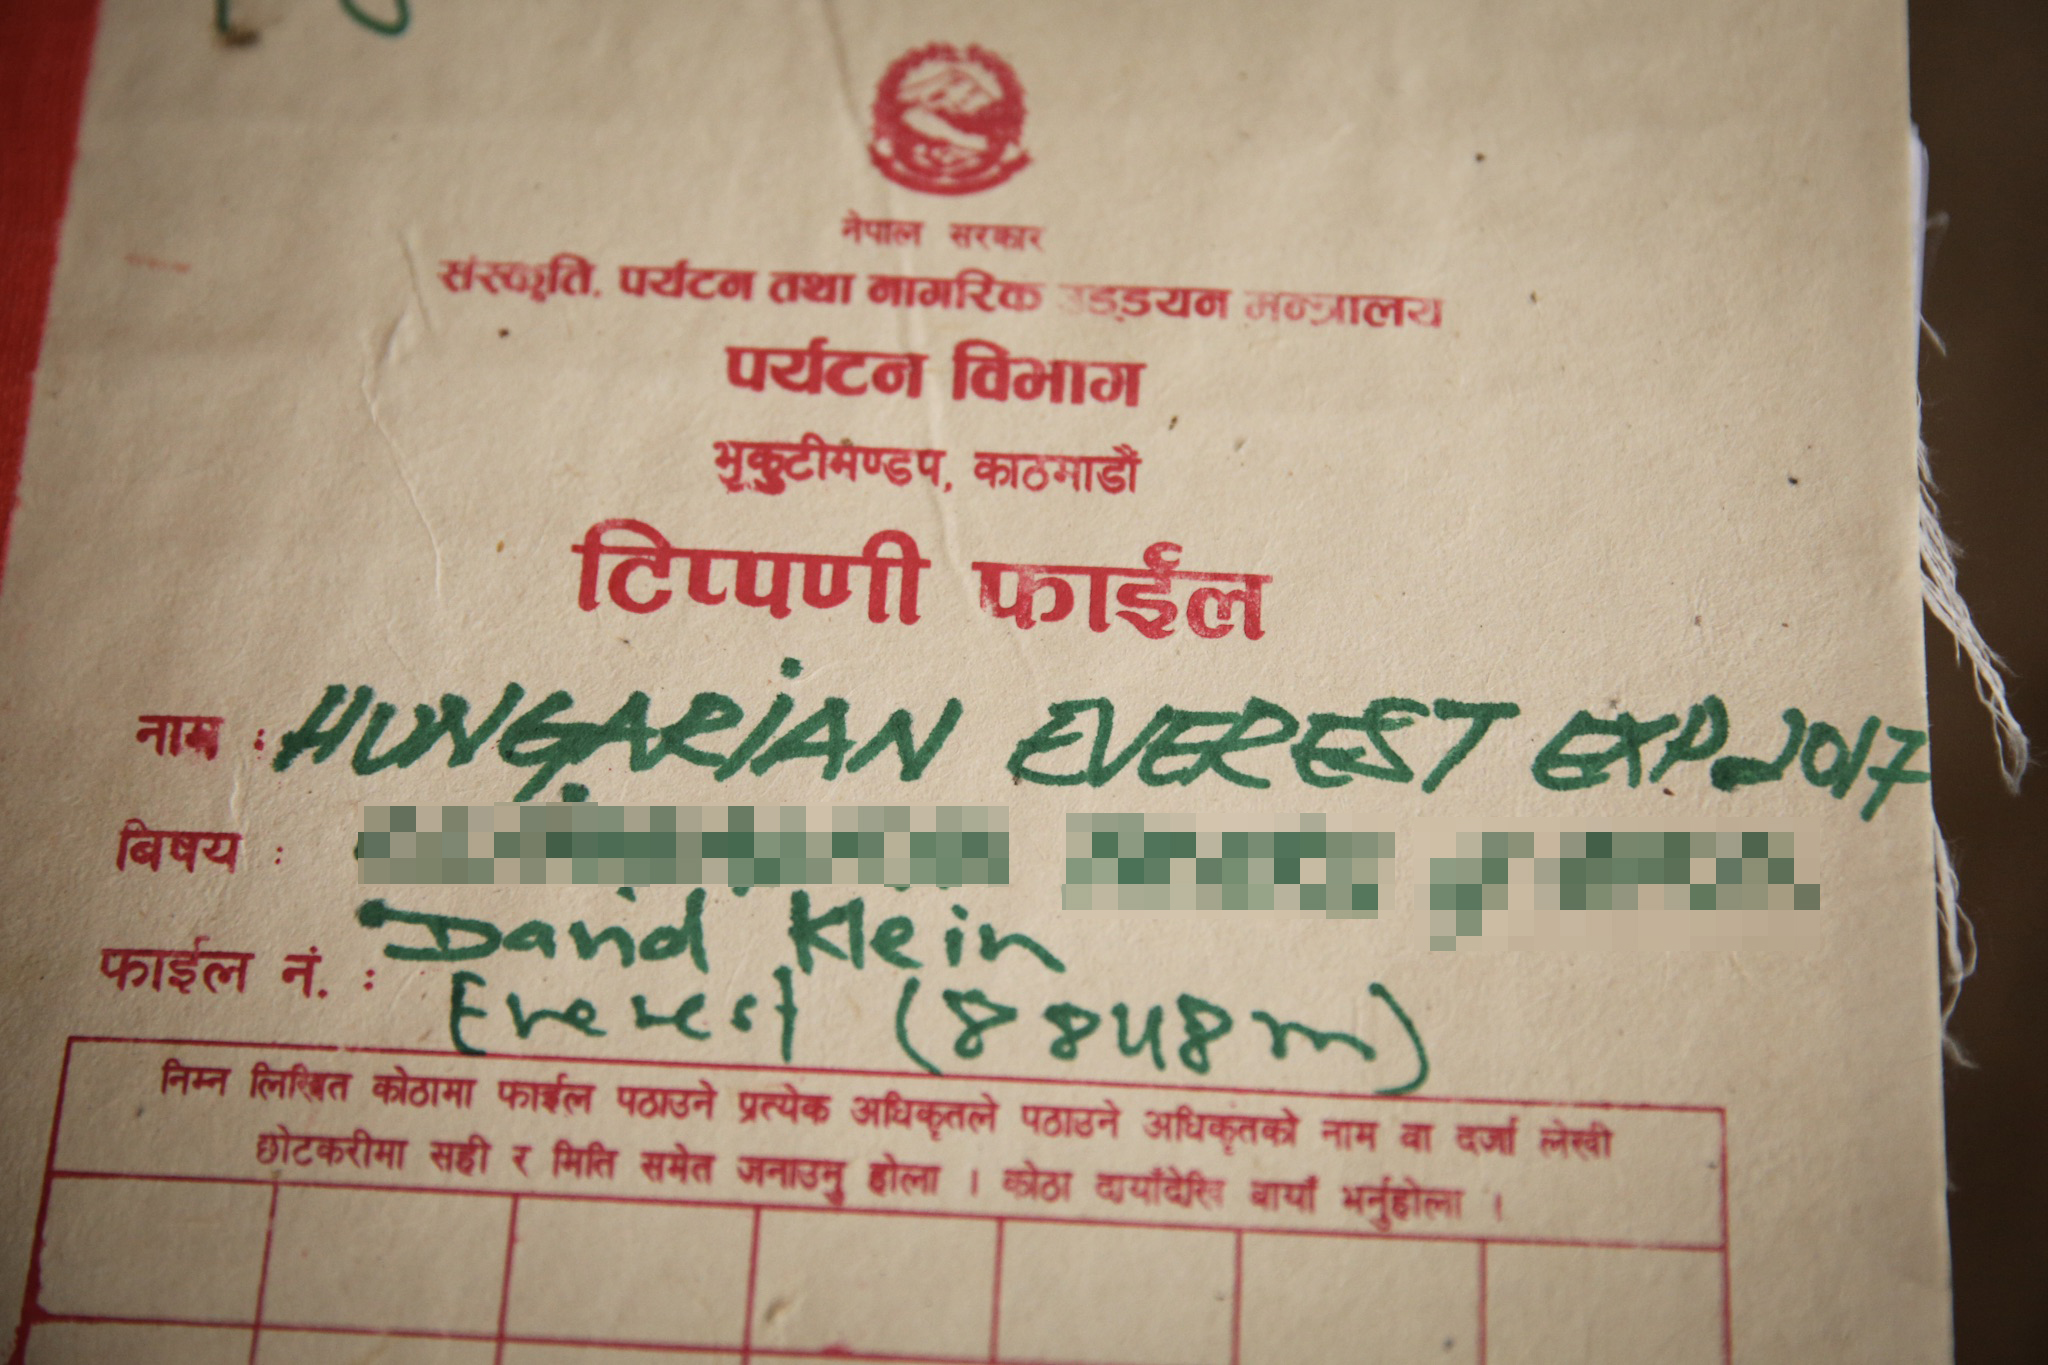 नेपाल सरकार
संस्कृति, पर्यटन तथा नागरिक उड्डयन मन्त्रालय
पर्यटन विभाग
भृकुटीमण्डप, काठमाडौं
टिप्पणी फाईल
नाम : HUNGARIAN EVEREST EXP. 2017
बिषय :
David Klein
फाईल नं. :
Everest (8848m)
निम्न लिखित कोठामा फाईल पठाउने प्रत्येक अधिकृतले पठाउने अधिकृतको नाम वा दर्जा लेखी
छोटकरीमा सही र मिति समेत जनाउनु होला । कोठा दायाँदेखि बायाँ भर्नुहोला ।